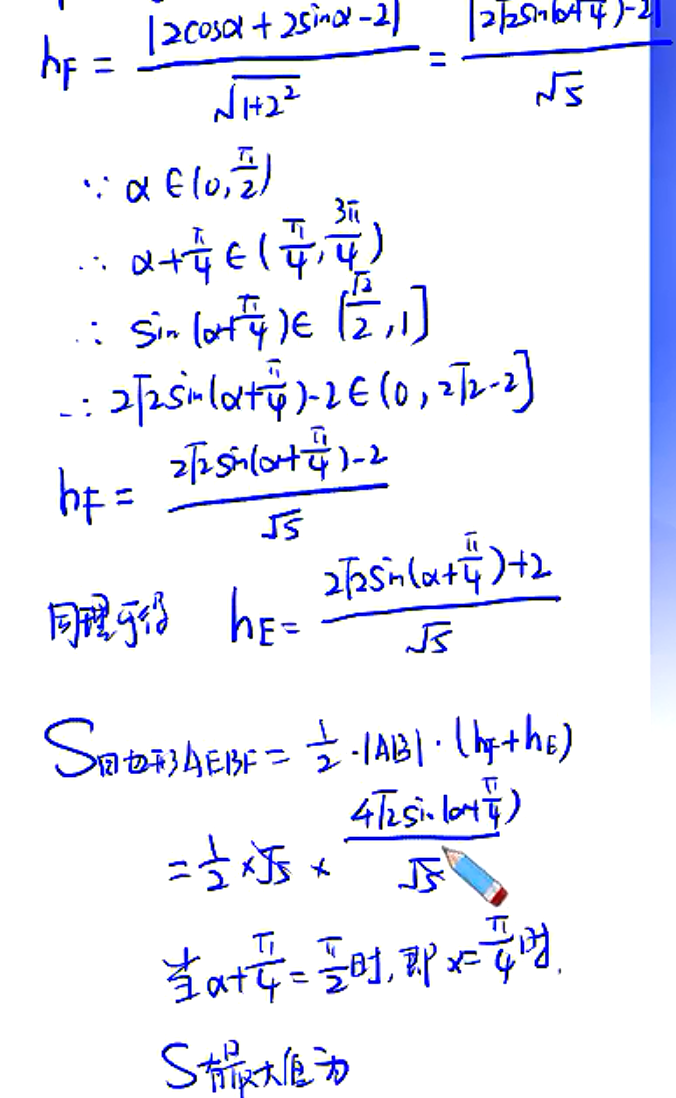 h_F = |2cosα + 2sinα - 2| / √(1+2²) = |2√2sin(α+π/4)-2| / √5
∵ α∈(0, π/2)
∴ α+π/4 ∈ (π/4, 3π/4)
∴ sin(α+π/4)∈ (√2/2, 1]
∴ 2√2sin(α+π/4)-2∈(0, 2√2-2]
h_F = (2√2sin(α+π/4)-2) / √5
同理可得 h_E = (2√2sin(α+π/4)+2) / √5
S四边形AEBF = 1/2 ·|AB|·(h_F+h_E)
= 1/2 ×√5 × 4√2sin(α+π/4) / √5
当α+π/4 = π/2时, 即x=π/4时.
S有最大值为